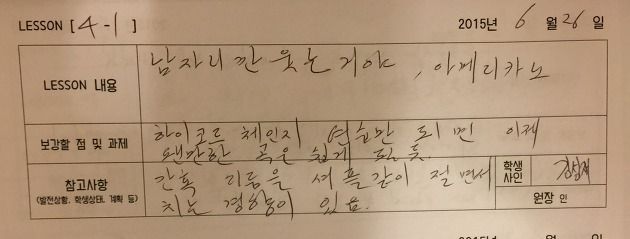 LESSON [4-1] 2015년 6월 26일
LESSON 내용
남자라면 웃는거야, 아메리카노
보강할 점 및 과제
하이코드 체인지 연습만 되면 이제
왠만한 곡은 쉽게 될듯.
참고사항
(발전상황, 학생상태, 계획 등)
간혹 리듬을 셔플같이 절면서
치는 경향이 있음.
학생
사인
원장 인
2015년 월 일